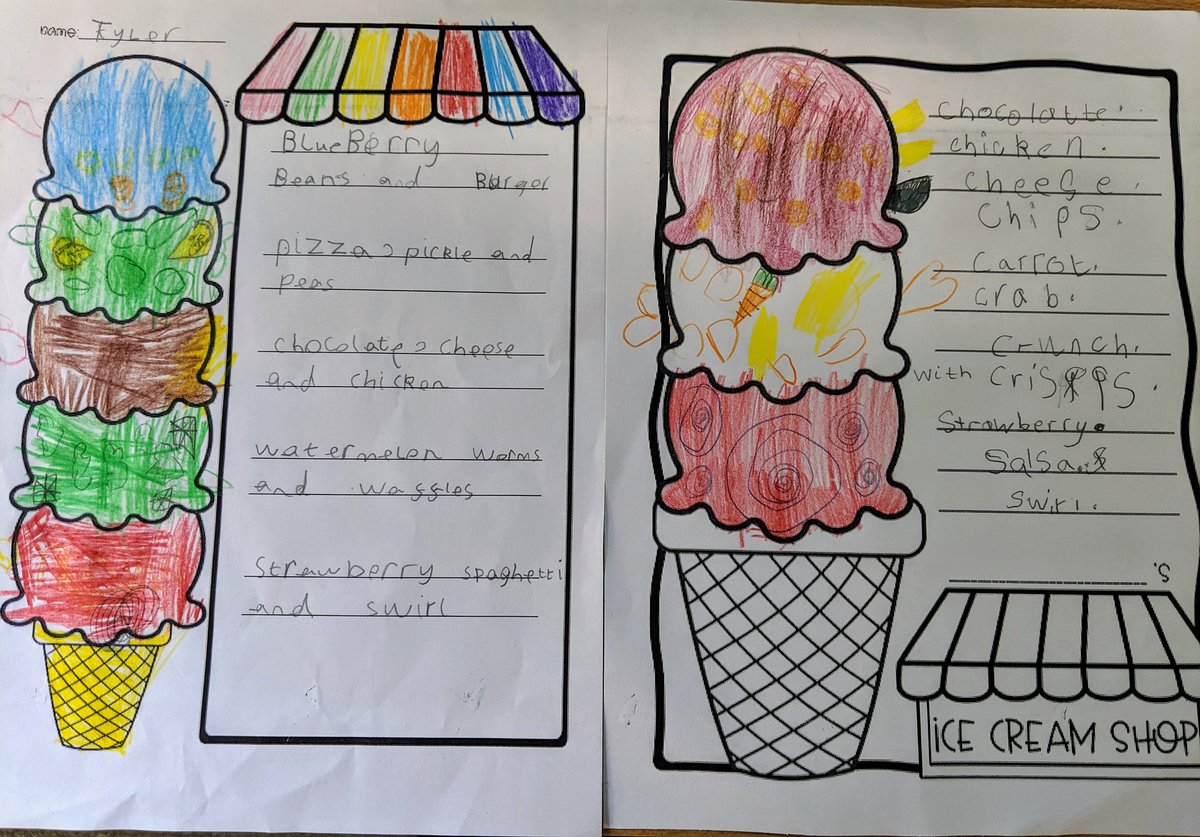 name: Tyler
BlueBerry
Beans and Burger
pizza, pickle and
peas
chocolate, cheese
and chicken
watermelon worms
and waggles
strawberry spaghetti
and swirl
chocolatte.
chicken.
cheese.
chips.
carrot.
crab.
crunch.
with crisps.
Strawberry.
Salsa.
swirl.
's
ICE CREAM SHOP